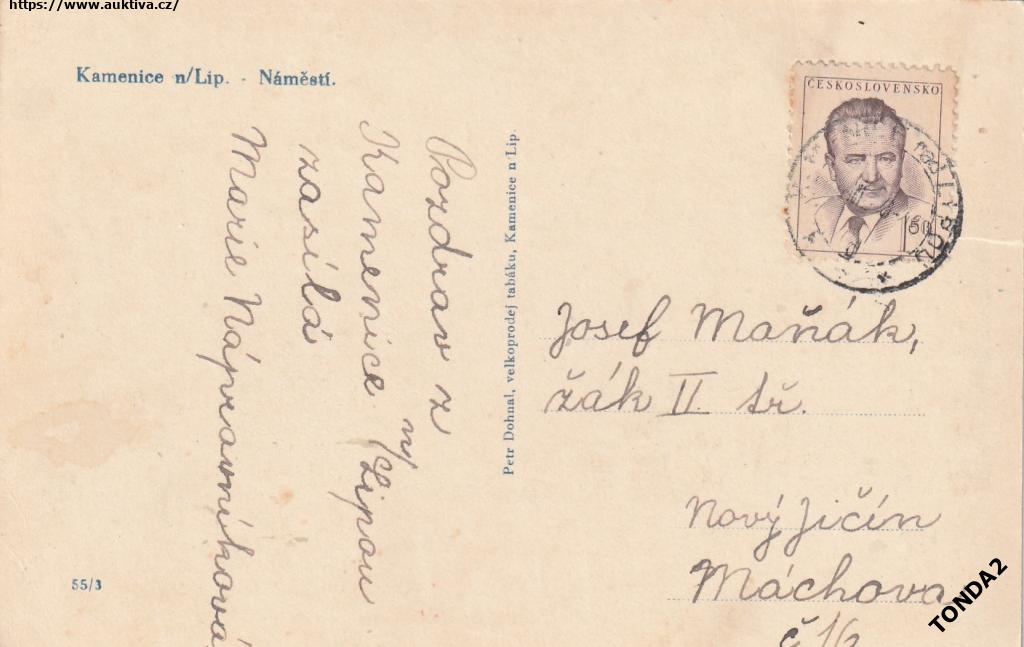 https://www.auktiva.cz/
Kamenice n/Lip. - Náměstí.
Pozdrav z
Kamenice n/Lipou
zasílá
Marie Nápravníková
Petr Dohnal, velkoprodej tabáku, Kamenice n Lip.
ČESKOSLOVENSKO
1.60
Josef Maňák,
žák II. tř.
Nový Jičín
Máchova
č 16
55/3
TONDA2